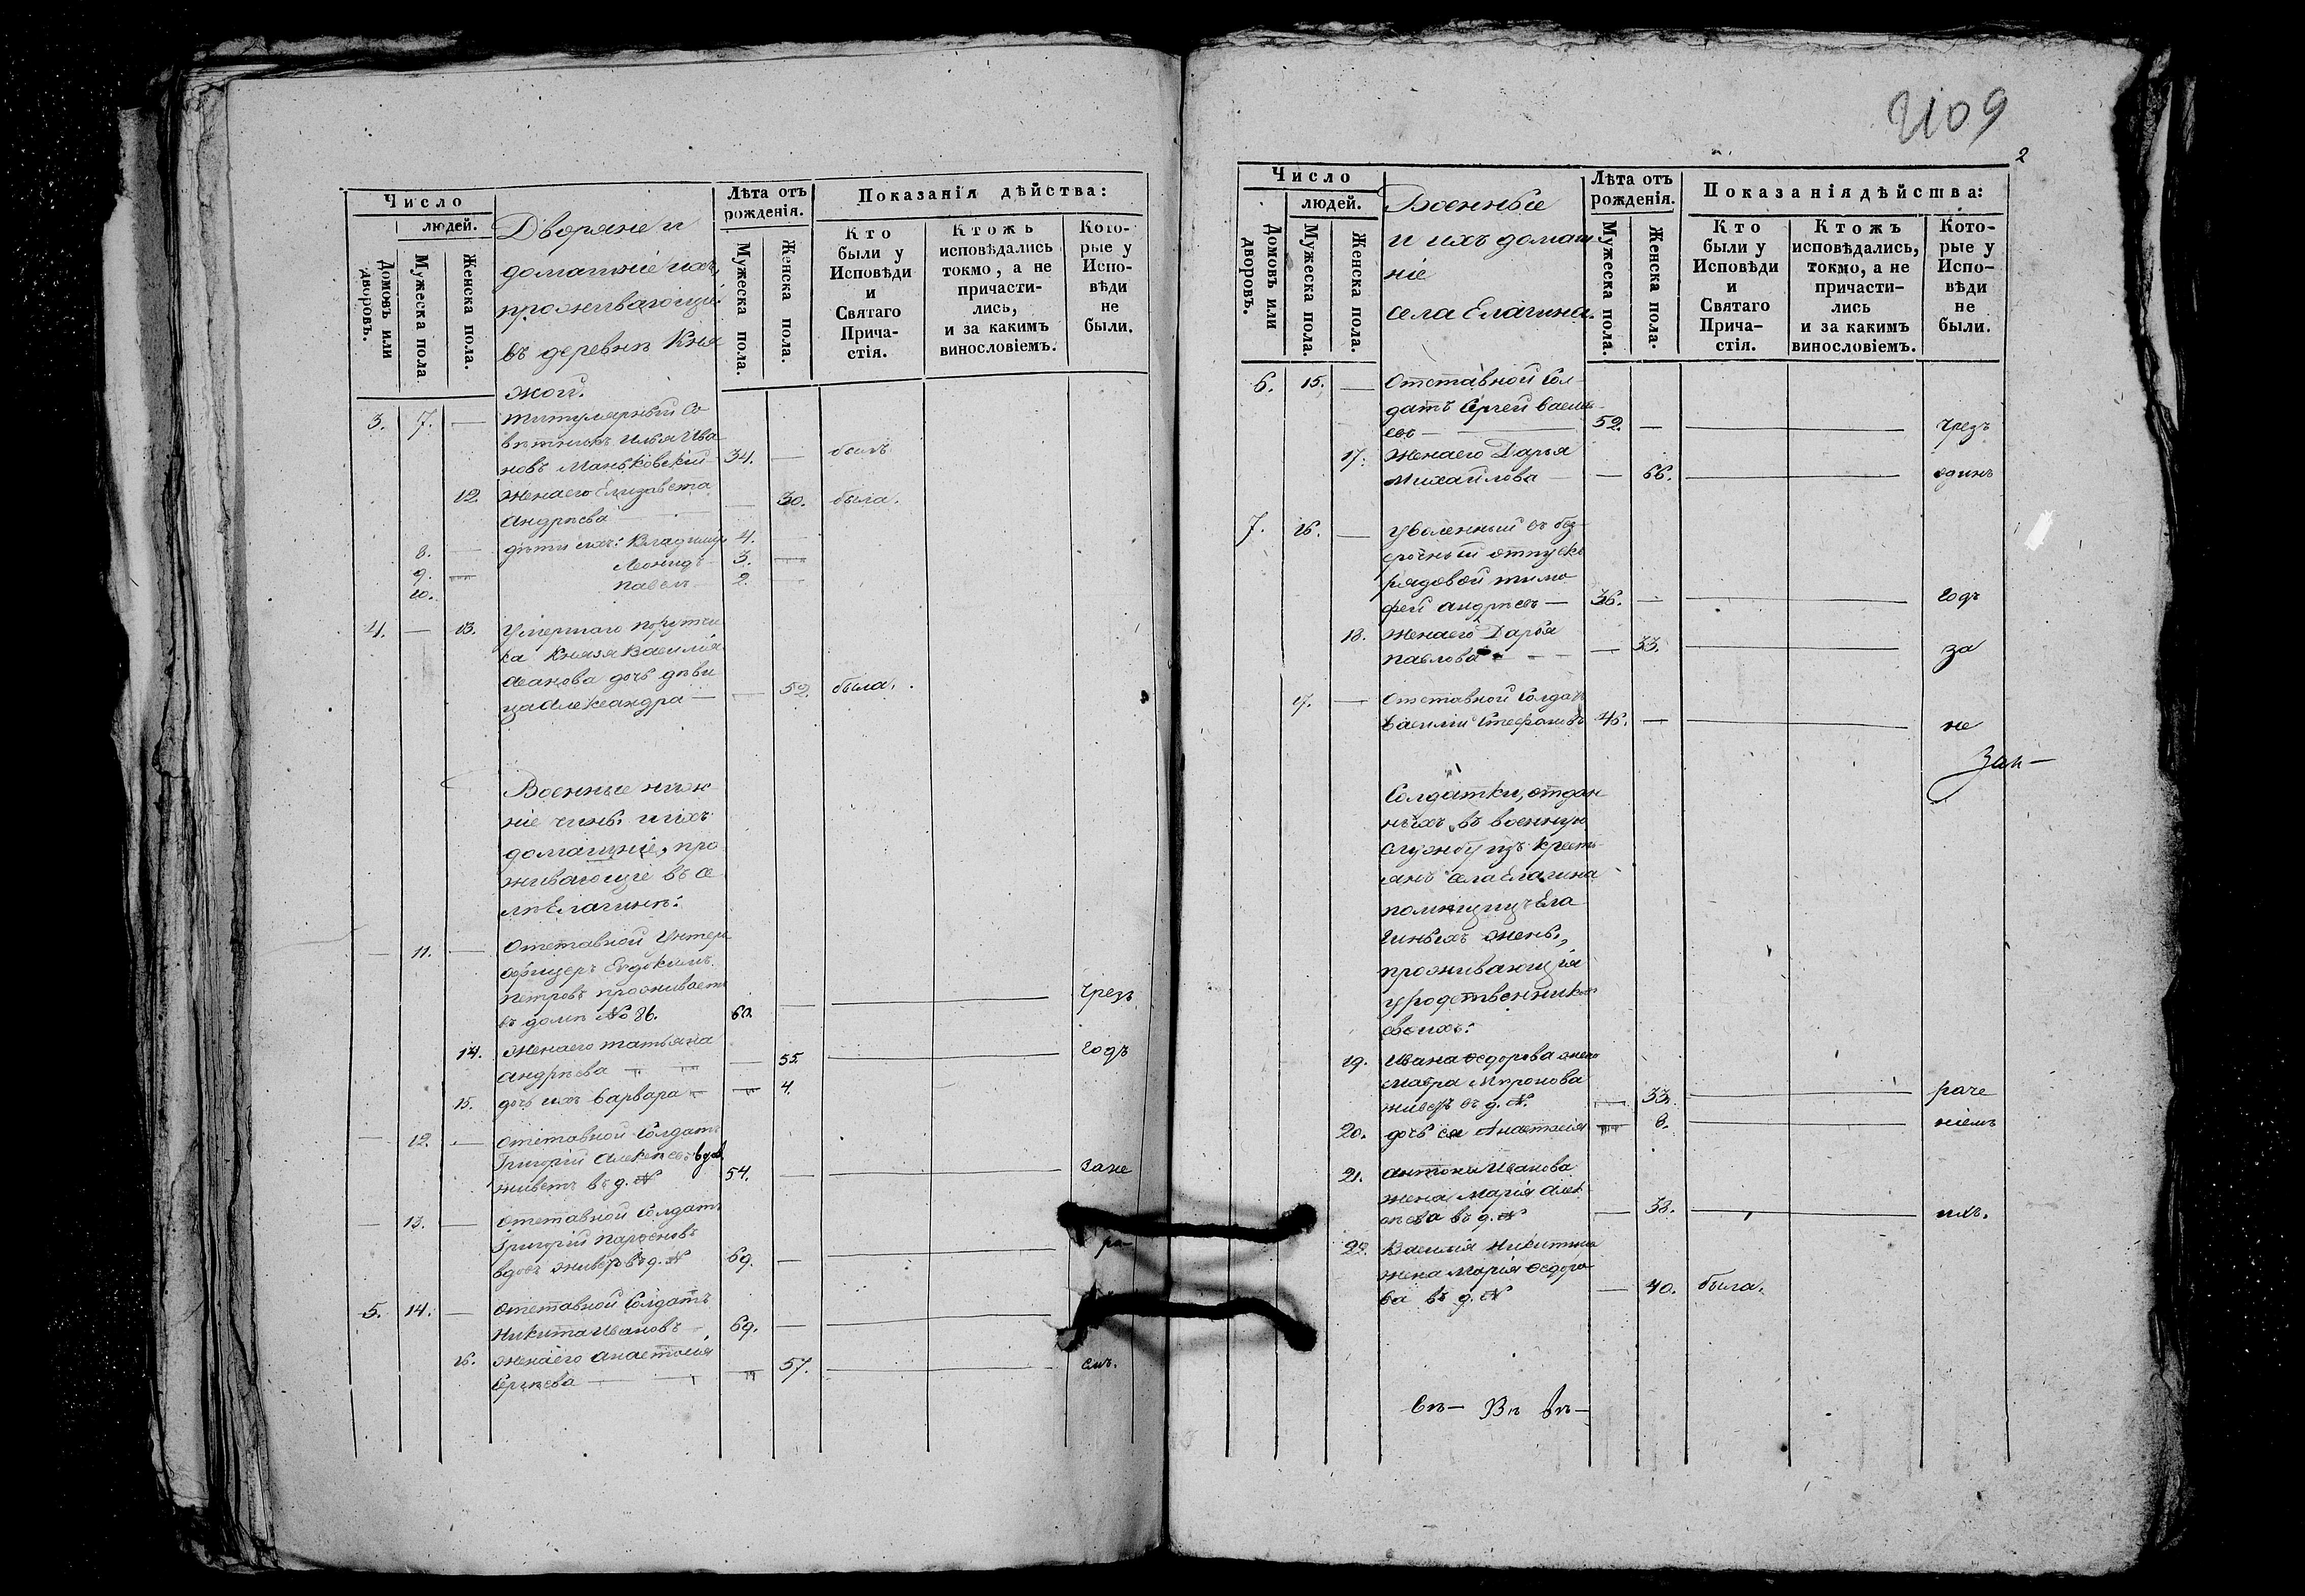 Число
людей.
Домовъ или дворовъ.
Мужеска пола
Женска пола.
Дворяне и
домашніе ихъ,
проживающіе
въ деревнѣ Кня
жой.
Лѣта отъ
рожденія.
Мужеска пола.
Женска пола.
Показанія дѣйства:
Кто
были у
Исповѣди
и
Святаго
Прича-
стія.
Ктожъ
исповѣдались
токмо, а не
причасти-
лись,
и за какимъ
винословіемъ.
Кото-
рые у
Испо-
вѣди
не
были.
3. 7. — Титулярный Со
вѣтникъ Илья Ива
новъ Маньковскій 34. — былъ
12. Жена его Елизавета
Андрѣева — — 30. была.
8. — дѣти ихъ: Владимір 4. —
9. — Леонидъ 3. —
10. Павелъ 2. —
4. — 13. Умершаго поручи
ка Князя Василія
дочь дѣви
ца Александра — — 52. была.
Военные ниж
ніе чины и ихъ
домашніе, про
живающіе въ се
лѣ Елагинѣ:
— 11. — Отставной Унтеръ
офицеръ Евдокимъ
Петровъ проживаетъ
въ домѣ № 86. 60. — — чрезъ
14. Жена его Татьяна
Андрѣева — — — 55 — годъ
15. дочь ихъ Варвара — — 4.
— 12. — Отставной Солдатъ
Григорій Алексѣевъ вдов
живетъ въ д. № 54. — — Зане
— 13. — Отставной Солдатъ
Григорій Парѳеновъ
вдовъ живетъ въ д. № 69. — — ра-
5. 14. — Отставной Солдатъ
Никита Ивановъ — 69. — —
16. Жена его Анастасія
Сергѣева — — — 57. — емъ.
2109
2
Число
людей.
Домовъ или дворовъ.
Мужеска пола.
Женска пола.
Военные
и ихъ домаш
ніе
села Елагина.
Лѣта отъ
рожденія.
Мужеска пола.
Женска пола.
Показанія дѣйства:
Кто
были у
Исповѣди
и
Святаго
Прича-
стія.
Ктожъ
исповѣдались,
токмо, а не
причасти-
лись
и за какимъ
винословіемъ.
Кото-
рые у
Испо-
вѣди
не
были.
6. 15. — Отставной Сол
датъ Сергей Василь
евъ — 52. — — чрезъ
17. Жена его Дарья
Михайлова — — 66. — одинъ
7. 16. — Уволенный въ без
срочный отпускъ
рядовой Тимо
фей Андрѣевъ — 36. — — годъ
18. Жена его Дарья
Павлова — — — 33. — за
17. — Отставной Солдатъ
Василій Стефановъ 46. — — не
Зап—
Солдатки, отдан
ныхъ въ военную
службу изъ кресть
янъ села Елагина
помѣщицъ Ела
гиныхъ жены,
проживающія
у родственниковъ
своихъ:
19. Ивана Ѳедорова жена
Мавра Миронова
живетъ въ д. № — 33. — раче
20. дочь ея Анастасія — 8. — ніемъ
21. Антона Иванова
жена Марія Алек
сѣева въ д. № — 38. — ихъ.
22. Василія Никитина
жена Марія Ѳедоро
ва въ д. № — 40. была.
Вѣ—